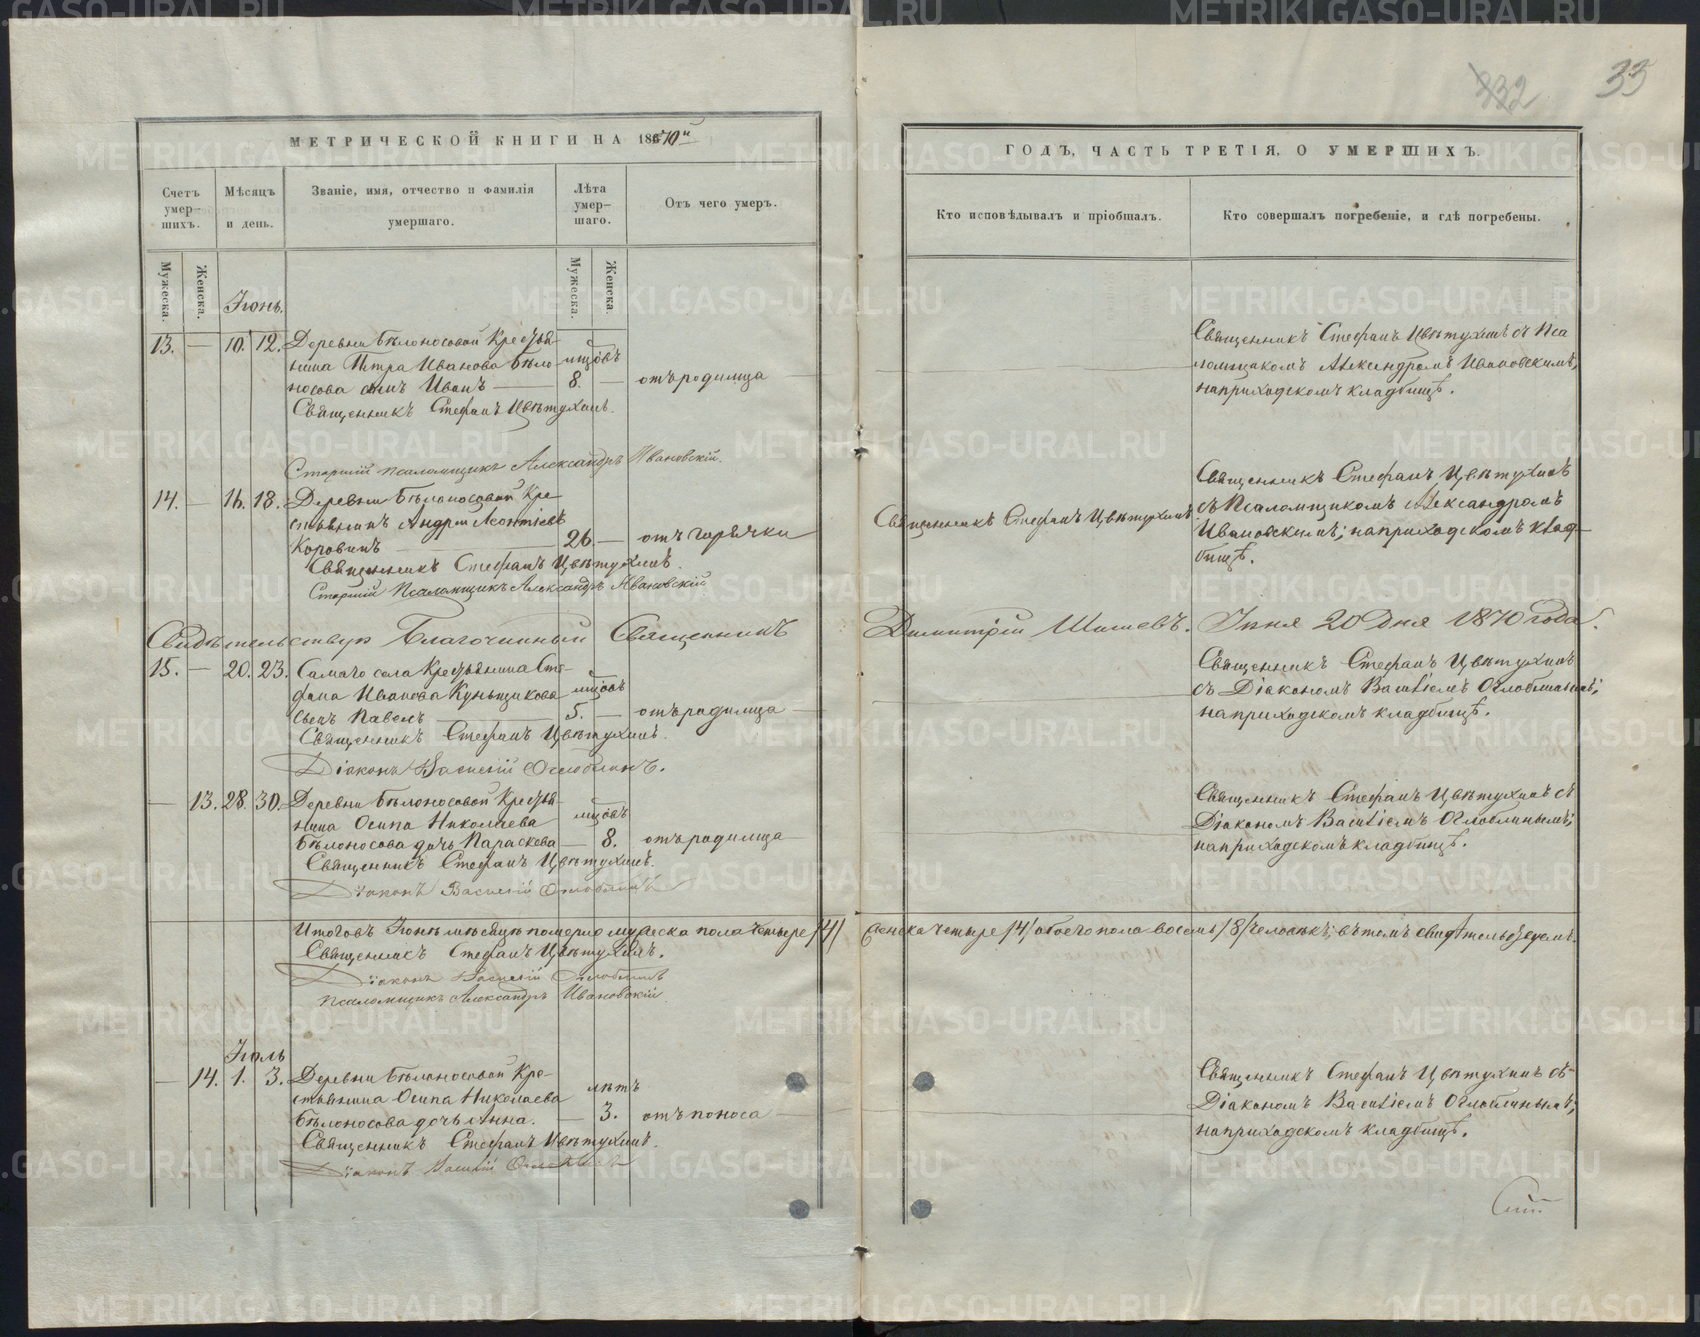 332
33
МЕТРИЧЕСКОЙ КНИГИ НА 1870й
ГОДЪ, ЧАСТЬ ТРЕТІЯ, О УМЕРШИХЪ.
Счетъ умер-шихъ.
Мѣсяцъ и день.
Званіе, имя, отчество и фамилія умершаго.
Лѣта умер-шаго.
Отъ чего умеръ.
Кто исповѣдывалъ и пріобщалъ.
Кто совершалъ погребеніе, и гдѣ погребены.
Мужеска.
Женска.
Мужеска.
Женска.
Іюнь.
13. — 10. 12. Деревни Бѣлоносовой Кресть-
янина Петра Иванова Бѣло- мѣсяцовъ
носова сынъ Иванъ — 8. — отъ родимца
Священникъ Стефанъ Цвѣтухинъ.
Старшій псаломщикъ Александръ Ивановскій.
Священникъ Стефанъ Цвѣтухинъ съ Пса
ломщикомъ Александромъ Ивановскимъ,
на приходскомъ кладбищѣ.
14. — 16. 18. Деревни Бѣлоносовой Кре-
стьянинъ Андрей Леонтіевъ
Коровинъ — 26. — отъ горячки
Священникъ Стефанъ Цвѣтухинъ.
Старшій Псаломщикъ Александръ Ивановскій
Священникъ Стефанъ Цвѣтухинъ
Священникъ Стефанъ Цвѣтухинъ
съ Псаломщикомъ Александромъ
Ивановскимъ; на приходскомъ клад-
бищѣ.
Свидѣтельствую Благочинный Священникъ Димитрій Шишевъ. Іюня 20 Дня 1870 года.
15. — 20. 23. Самаго села Крестьянина Сте-
фана Иванова Кунгщикова мѣсяцовъ
сынъ Павелъ — 5. — отъ родимца
Священникъ Стефанъ Цвѣтухинъ.
Діаконъ Василій Оглоблинъ.
Священникъ Стефанъ Цвѣтухинъ
съ Діакономъ Василіемъ Оглоблинымъ;
на приходскомъ кладбищѣ.
— 13. 28. 30. Деревни Бѣлоносовой Крестья-
нина Осипа Николаева мѣсяцовъ
Бѣлоносова дочь Параскева — 8. отъ родимца
Священникъ Стефанъ Цвѣтухинъ.
Діаконъ Василій Оглоблинъ
Священникъ Стефанъ Цвѣтухинъ съ
Діакономъ Василіемъ Оглоблинымъ;
на приходскомъ кладбищѣ.
Итого въ Іюнѣ мѣсяцѣ померло мужеска пола четыре /4/ женска четыре /4/ обоего пола восемь /8/ человѣкъ; въ томъ свидѣтельствуемъ.
Священникъ Стефанъ Цвѣтухинъ.
Діаконъ Василій Оглоблинъ
Псаломщикъ Александръ Ивановскій
Іюль
— 14. 1. 3. Деревни Бѣлоносовой Кре-
стьянина Осипа Николаева лѣтъ
Бѣлоносова дочь Анна. — 3. отъ поноса —
Священникъ Стефанъ Цвѣтухинъ.
Діаконъ Василій Оглоблинъ
Священникъ Стефанъ Цвѣтухинъ съ
Діакономъ Василіемъ Оглоблинымъ;
на приходскомъ кладбищѣ.
METRIKI.GASO-URAL.RU